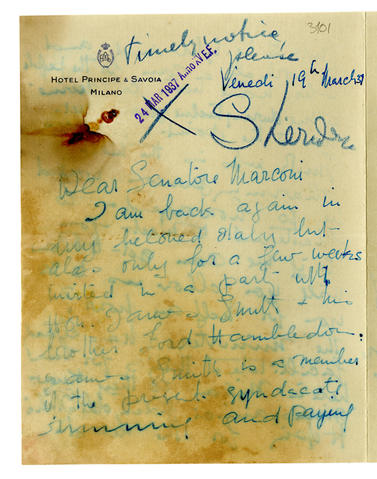 3101
Timely notice
please
HOTEL PRINCIPE & SAVOIA
MILANO
24 MAR 1937 ANNO XV E.F.
Venedi 19th March 37
Dear Senatore Marconi
I am back again in
my beloved Italy but
alas only for a few weeks
invited in a party with
Hon. James Smith & his
brother Lord Hambledon.
James Smith is a member
of the present syndacate
running and paying